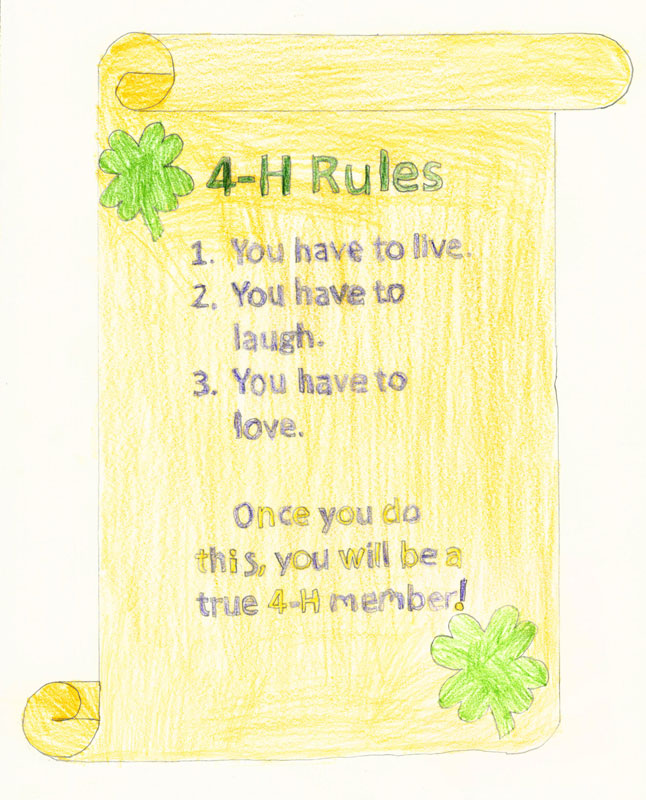 4-H Rules
1. You have to live.
2. You have to
laugh.
3. You have to
love.
Once you do
this, you will be a
true 4-H member!